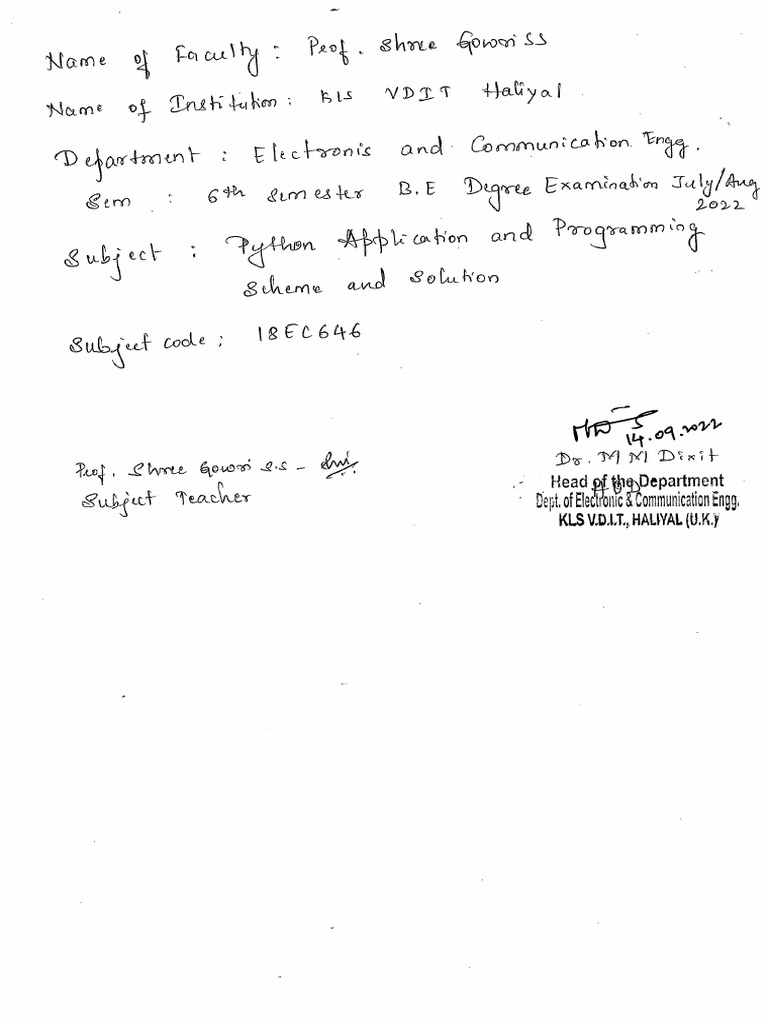 Name of Faculty : Prof. Shree Gowri SS
Name of Institution : KLS VDIT Haliyal
Department : Electronis and Communication Engg.
Sem : 6th semester B.E Degree Examination July/Aug
2022
Subject : Python Application and Programming
Scheme and Solution
Subject code : 18EC646
14.09.2022
Prof. Shree Gowri S.S -
Subject Teacher
Dr. M M Dixit
HOD
Head of the Department
Dept. of Electronic & Communication Engg.
KLS V.D.I.T., HALIYAL (U.K.)